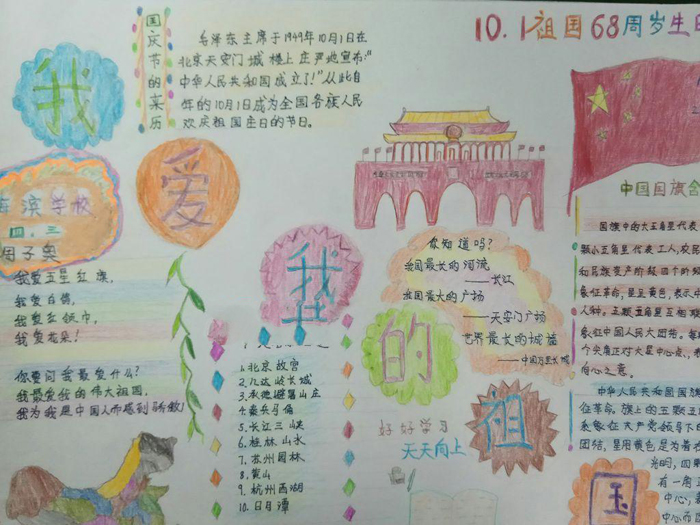 10.1祖国68周岁生日
国庆节的来历
毛泽东主席于1949年10月1日在
北京天安门城楼上庄严地宣布:“
中华人民共和国成立了!”从此每
年的10月1日成为全国各族人民
欢庆祖国生日的节日。
我
爱
我
的
祖
国
海滨学校
四.三
周子奥
我爱五星红旗,
我爱白鸽,
我爱红领巾,
我爱花朵!
你要问我最爱什么?
我最爱我的伟大祖国,
我为我是中国人而感到骄傲!
1.北京故宫
2.八达岭长城
3.承德避暑山庄
4.秦兵马俑
5.长江三峡
6.桂林山水
7.苏州园林
8.黄山
9.杭州西湖
10.日月潭
你知道吗?
我国最长的河流
——长江
我国最大的广场
——天安门广场
世界最长的城墙
——中国万里长城
好好学习
天天向上
中国国旗含
国旗中的大五角星代表
颗小五角星代表工人,农民
和民族资产阶级四个阶
象征革命,星呈黄色,表示中
人种。五颗五角星互相
象征中国人民大团结。每
个尖角正对大星中心点,
向心之意。
中华人民共和国国旗
征革命。旗上的五颗五
系象征共产党领导下的
团结,星用黄色是为着在
光明,四
有一角正
中心,
中心而